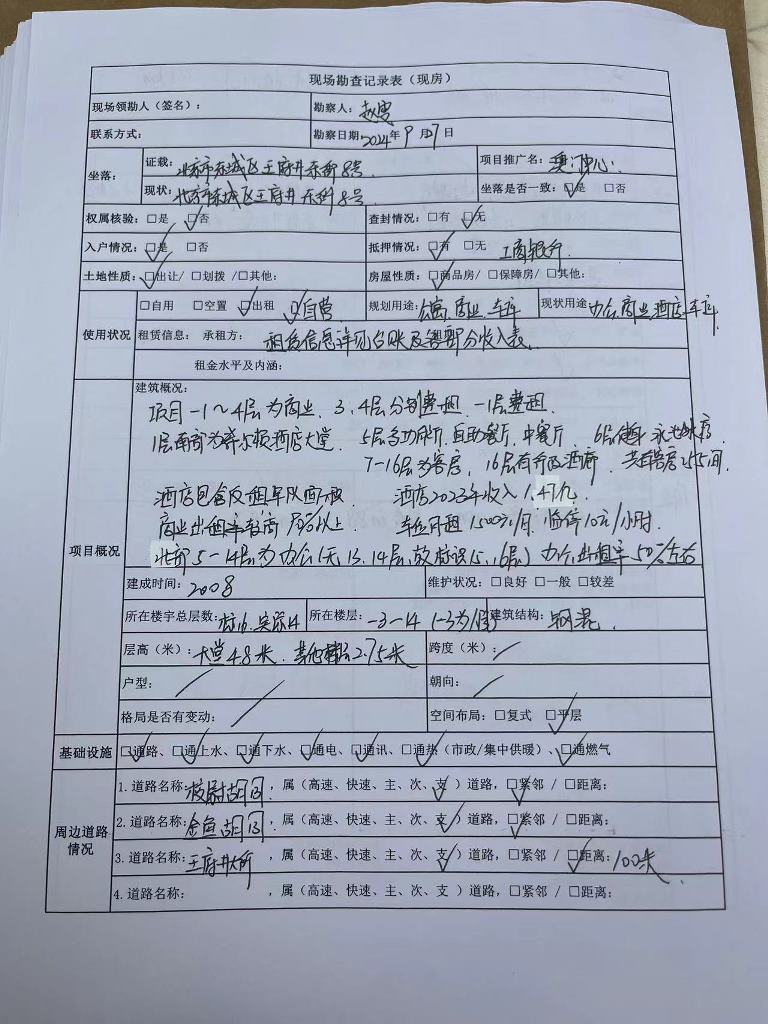 现场勘查记录表（现房）
现场领勘人（签名）： 勘察人：
联系方式： 勘察日期2024年9月7日
坐落： 证载：北京市东城区王府井东街8号 项目推广名：澳门中心
现状：北京市东城区王府井东街8号 坐落是否一致：☑是 □否
权属核验：□是 ☑否 查封情况：□有 ☑无
入户情况：☑是 □否 抵押情况：☑有 □无 工商银行
土地性质：☑出让/ □划拨 /□其他： 房屋性质：☑商品房/ □保障房/ □其他：
使用状况 □自用 □空置 ☑出租 ☑自营 规划用途：公寓、商业、车库 现状用途：办公、商业、酒店、车库
租赁信息： 承租方： 租赁信息详见台账及客部分收入表
租金水平及内涵：
项目概况 建筑概况：
项目-1～4层为商业、3、4层分别整租、-1层整租
1层南部为 酒店大堂 5层多功能厅、自助餐厅、中餐厅 6层健身、泳池
7-16层为客房，16层有行政酒廊，共有客房255间
酒店包含 酒店2023年收入1.4亿
商业出租率较高 以上 车位月租1500元/月 临停10元/小时
北部5-14层为办公(无13、14层，故标识15、16层) 办公出租率50%左右
建成时间：2008 维护状况：□良好 □一般 □较差
所在楼宇总层数：标16、实际14 所在楼层：-3-14 (-3为 建筑结构：钢混
层高（米）：大堂4.8米、其他 2.75米 跨度（米）：
户型： 朝向：
格局是否有变动： 空间布局：□复式 ☑平层
基础设施 ☑通路、☑通上水、☑通下水、☑通电、☑通讯、☑通热（市政/集中供暖）、☑通燃气
周边道路情况 1. 道路名称：校尉胡同，属（高速、快速、主、次、支✓）道路，☑紧邻 / □距离：
2. 道路名称：金鱼胡同，属（高速、快速、主、次、支✓）道路，☑紧邻 / □距离：
3. 道路名称：王府井大街，属（高速、快速、主、次、支✓）道路，□紧邻 / ☑距离：100米
4. 道路名称： ，属（高速、快速、主、次、支 ）道路，□紧邻 / □距离：